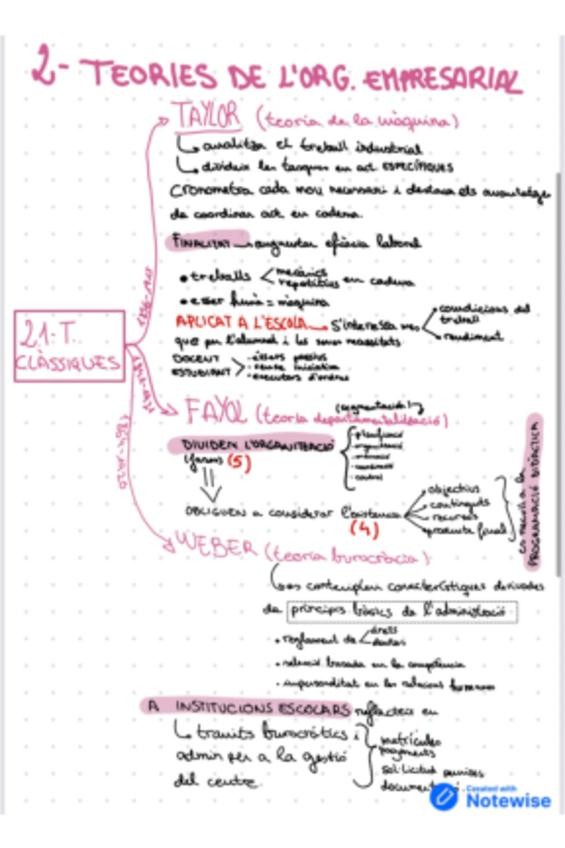 2- TEORIES DE L'ORG. EMPRESARIAL
TAYLOR (teoria de la màquina)
analitza el treball industrial
divideix les tasques en act. ESPECÍFIQUES
Cronometra cada mov necessari i destaca els avantatges
de coordinar act. en cadena.
FINALITAT augmentar eficàcia laboral
• treballs mecànics
repetitius en cadena
• ésser humà = màquina
APLICAT A L'ESCOLA S'interessa més condicions del
treball
rendiment
que per l'alumnat i les seves necessitats
DOCENT
ESTUDIANT
- éssers passius
- sense iniciativa
- executors d'ordres
2.1-T.
CLÀSSIQUES
FAYOL (teoria departamentalització)
(segmentació)
DIVIDEIX L'ORGANITZACIÓ
(5)
- planificació
- organització
- coordinació
- control
OBLIGUEN a considerar l'existència
(4)
objectius
continguts
recursos
producte final
PROGRAMACIÓ DIDÀCTICA
WEBER (teoria burocràcia)
es contemplen característiques derivades
de principis bàsics de l'administració
• reglament de drets
deutes
• selecció basada en la competència
• impersonalitat en les relacions humanes
A INSTITUCIONS ESCOLARS reflecteix en
tràmits burocràtics i
admin per a la gestió
del centre.
matrícules
pagaments
sol·licitud permisos
Created with
Notewise